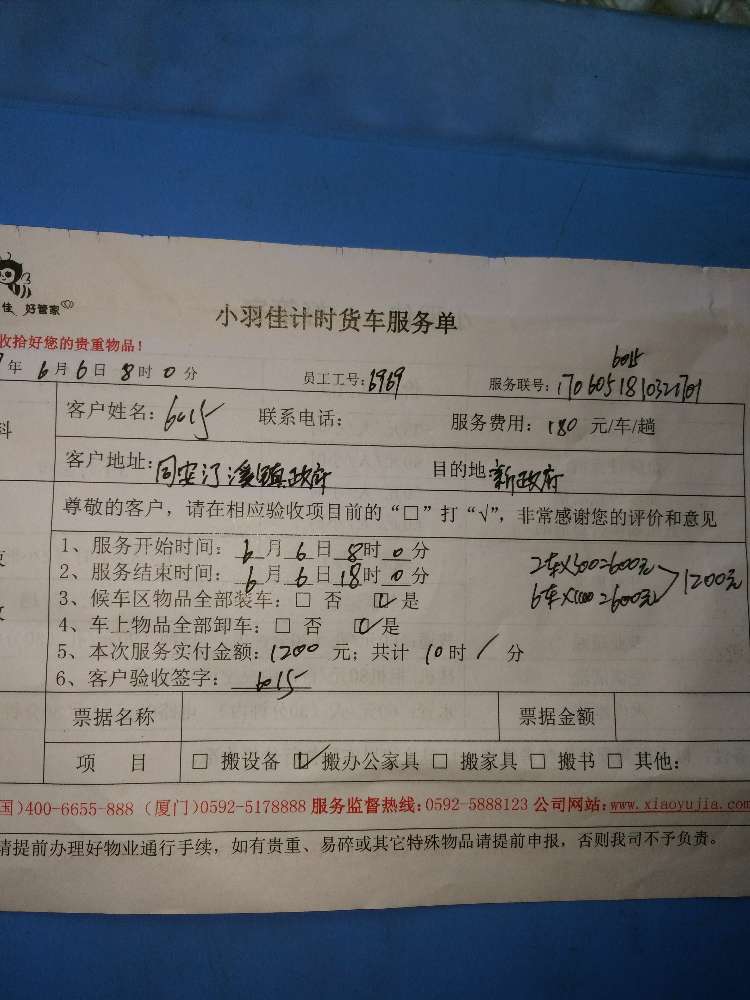 佳 好管家
小羽佳计时货车服务单
收拾好您的贵重物品!
年 6月6日8时0分 员工工号:6969 服务联号:
6015
客户姓名:6015 联系电话: 服务费用:180 元/车/趟
客户地址:同安汀溪镇政府 目的地:新政府
尊敬的客户，请在相应验收项目前的“□”打“√”，非常感谢您的评价和意见
1、服务开始时间：6月6日8时0分
2、服务结束时间：6月6日18时0分
3、候车区物品全部装车：□ 否 ☑是
4、车上物品全部卸车：□ 否 ☑是
5、本次服务实付金额：1200 元；共计 10时 / 分
6、客户验收签字：6015
2车X300=600元
6车X100=600元
1200元
票据名称 票据金额
项 目 □ 搬设备 ☑ 搬办公家具 □ 搬家具 □ 搬书 □ 其他：
国)400-6655-888 (厦门)0592-5178888 服务监督热线:0592-5888123 公司网站:www.xiaoyujia.com
请提前办理好物业通行手续，如有贵重、易碎或其它特殊物品请提前申报，否则我司不予负责。